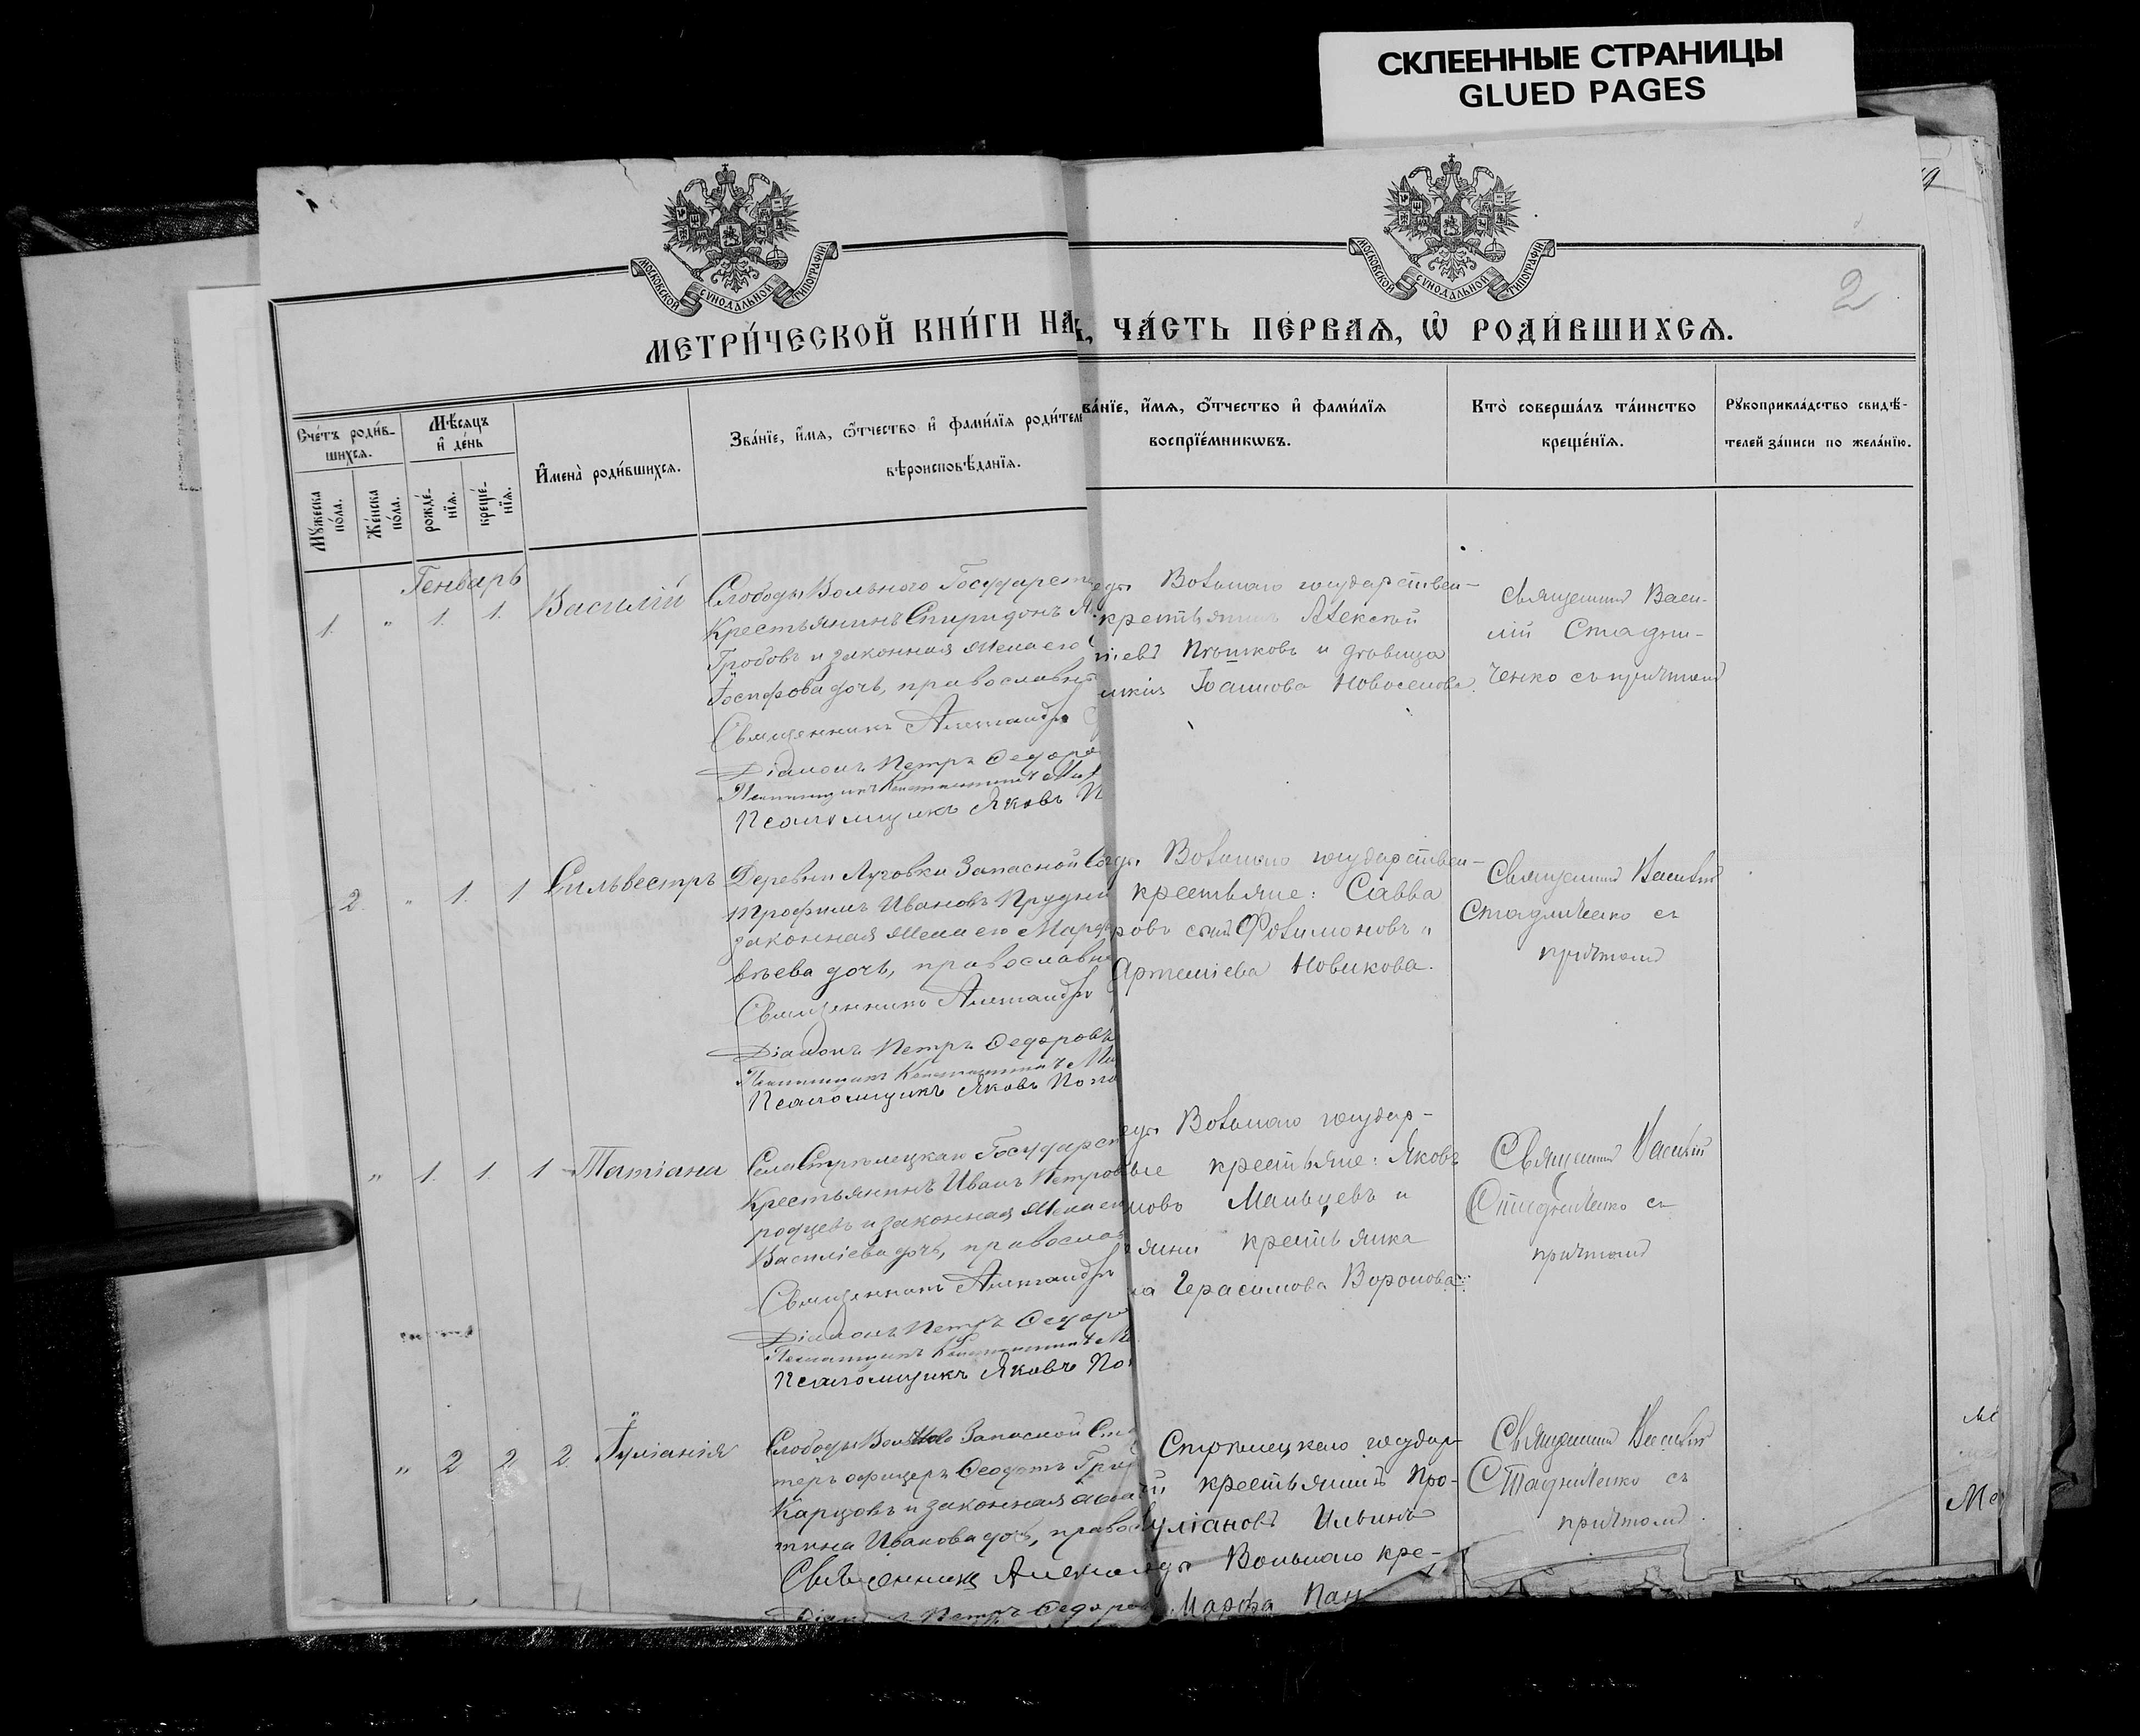 СКЛЕЕННЫЕ СТРАНИЦЫ
GLUED PAGES
МОСКОВСКОЙ СѴНОДАЛЬНОЙ ТИПОГРАФІИ
МОСКОВСКОЙ СѴНОДАЛЬНОЙ ТИПОГРАФІИ
2
МЕТРИ́ЧЕСКОЙ КНИ́ГИ НА
, ЧА́СТЬ ПЕ́РВАѦ, Ѡ҆ РОДИ́ВШИХСѦ.
Сче́тъ роди́в-
шихсѧ.
Мꙋ́жеска
по́ла.
Же́нска
по́ла.
Мѣ́сѧцъ
и҆ де́нь
рожде́-
нїѧ.
креще́-
нїѧ.
И҆мена̀ роди́вшихсѧ.
Зва́нїе, и҆́мѧ, ѻ҆́тчество и҆ фами́лїѧ роди́теле
вѣроисповѣ́данїѧ.
ва́нїе, и҆́мѧ, ѻ҆́тчество и҆ фами́лїѧ
воспрїе́мникѡвъ.
Кто̀ соверша́лъ та́инство
креще́нїѧ.
Рꙋкоприкла́дство свидѣ́-
телей за́писи по жела́нїю.
Генварь
1. " 1. 1. Василій
Слободы Вольного Государств
Крестьянинъ Спиридонъ
Гробовъ и законная жена его
Іосифова дочь, православн
Священникъ Александръ
Діаконъ Петръ Ѳедоро
Псаломщикъ Константинъ
Псаломщикъ Яковъ П
Вольнаго государствен-
крестьянинъ Алексѣй
и дѣвица
Іоаннова Новоселова.
Священникъ Васи-
лій Стадни-
ченко съ причтомъ
2. " 1. 1 Сильвестръ
Деревни Луговки Запасной
Трофимъ Ивановъ Прудни
законная жена его Марѳ
вѣева дочь, православн
Священникъ Александръ
Діаконъ Петръ Ѳедоровъ
Псаломщикъ Константинъ
Псаломщикъ Яковъ Попо
Вольнаго государствен-
крестьяне: Савва
ровъ сынъ Филимоновъ и
Артеміева Новикова.
Священникъ Василій
Стадниченко съ
причтомъ
" 1. 1. 1 Татіана
Села Стрѣлецкаго Государст
Крестьянинъ Иванъ Петров
родцевъ и законная жена ег
Васильева дочь, правосла
Священникъ Александръ
Діаконъ Петръ Ѳедоро
Псаломщикъ Константинъ
Псаломщикъ Яковъ По
Вольнаго государ-
ные крестьяне: Яковъ
новъ Мальцевъ и
крестьянка
на Герасимова Воронова.
Священникъ Василій
Стадниченко съ
причтомъ
" 2 2 2. Іуліанія
Слободы Вольной Запасной
теръ офицеръ Ѳеодотъ Григ
Карцовъ и законная
тина Иванова дочь, правос
Священникъ Алекса
Петръ Ѳедоров
Стрѣлецкаго государ-
крестьянинъ Про-
уліановъ Ильинъ
Вольнаго кре-
Марѳа Пан
Священникъ Василій
Стадниченко съ
причтомъ.